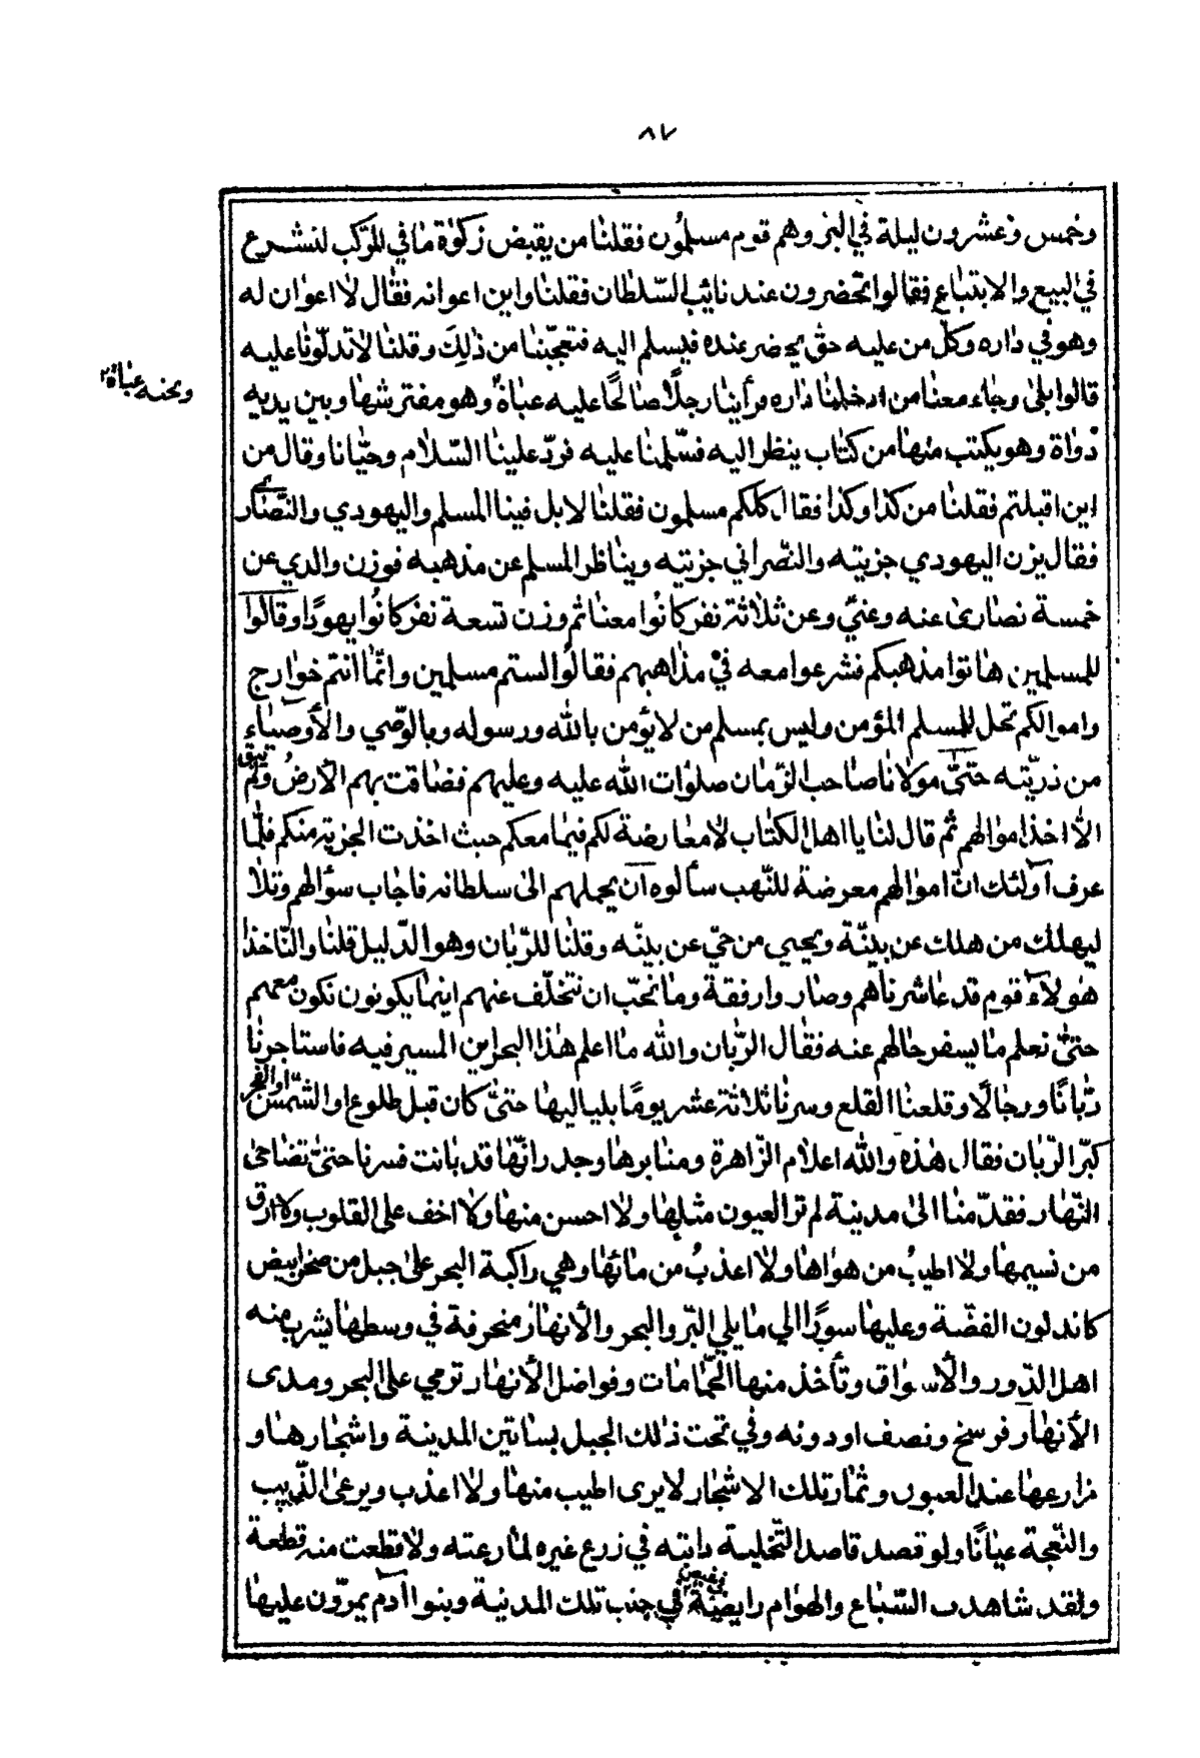 ٨٧
وخمس وعشرون ليلة في البر وهم قوم مسلمون فقلنا من يقبض زكوة ما في المركب لنشرع
في البيع والابتباع فقالوا تحضرون عند نائب السّلطان فقلنا واين اعوانه فقال لا اعوان له
وهو في داره وكلّ من عليه حق يحضر عنده فيسلم اليه فتعجّبنا من ذلك وقلنا الا تدلّونا عليه
وتحته عباة
قالوا بلى وجاء معنا من ادخلنا داره فرأينا رجلًا صالحًا عليه عباة وهو مفترشها وبين يديه
دواة وهو يكتب منها من كتاب ينظر اليه فسّلمنا عليه فردّ علينا السّلام وحيّانا وقال من
اين اقبلتم فقلنا من كذا وكذا فقال كلكم مسلمون فقلنا لا بل فينا المسلم واليهودي والنّصارى
فقال يزن اليهودي جزيته والنّصراني جزيته ويناظر المسلم عن مذهبه فوزن والدي عن
خمسة نصارى عنه وعنّي وعن ثلاثة نفر كانوا معنا ثم وزن تسعة نفر كانُوا يهودًا وقالوا
للمسلمين هاتوا مذهبكم فشرعوا معه في مذاهبهم فقالوا لستم مسلمين وانّما انتم خوارج
واموالكم تحل للمسلم المؤمن وليس بمسلم من لا يؤمن بالله ورسوله وبالوصّي والأوصياء
من ذريّته حتّى مولانا صاحب الزّمان صلوات الله عليه وعليهم فضاقت بهم الأرضُ ولم يبق
الّا اخذ اموالهم ثم قال لنا يا اهل الكتاب لا معارضة لكم فيما معكم حيث اخذت الجزية منكم فلّما
عرف اولئك انّ اموالهم معرضة للنّهب سألوه ان يحملهم الى سلطانه فاجاب سؤالهم وتلا
ليهلك من هلك عن بيّنة ويحيي من حيّ عن بيّنه وقلنا للرّبان وهو الدّليل قلنا والنّاخذا
هولاء قوم قد عاشرناهم وصاروا رفقة وما نحبّ ان نتخلّف عنهم اينما يكونون نكون معهم
حتىّ نعلم ما يسفر حالهم عنه فقال الرّبان والله ما اعلم هذا البحر اين المسير فيه فاستاجرنا
ربّانًا ورجالًا وقلعنا القلع وسرنا ثلاثة عشر يومًا بلياليها حتىّ كان قبل طلوع او الشّمس او الفجر
كبّر الرّبان فقال هذه والله اعلام الزّاهرة ومنابرها وجدرانّها قد بانت فسرنا حتىّ تضاحى
النّهار فقدّمنا الى مدينة لم تر العيون مثلها ولا احسن منها ولا اخف على القلوب ولا ارق
من نسيمها ولا اطيبُ من هواها ولا اعذبُ من مائها وهي راكبة البحر على جبل من صخر ابيض
كانه لون الفضّة وعليها سورًا الي ما يلي البّر والبحر والأنهار منحرفة في وسطها يشرب منه
اهل الدّور والأسواق وتأخذ منها الحمّامات وفواضل الأنهار ترمي على البحر ومدى
الأنهار فرسخ ونصف او دونه وفي تحت ذلك الجبل بساتين المدينة واشجارها و
مزارعها عند العيون وثمار تلك الاشجار لا يرى اطيب منها ولا اعذب ويرعى الذّيب
والنّعجة عيانًا ولو قصد قاصد التّخلية دابته في زرع غيره لما رعته ولا قطعت منه قطعة
ولقد شاهدت السّباع والهوام رايضة في جنب تلك المدينة وبنوا آدم يمرّون عليها